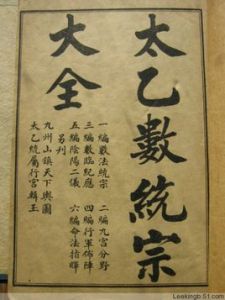 太乙數統宗
大全
一編數法統宗 二編九宮分野
三編數臨紀應 四編行軍佈陣
五編陰陽二議 六編命法指暉
另列
九州山鎮天下輿圖
太乙統屬行宮輯王